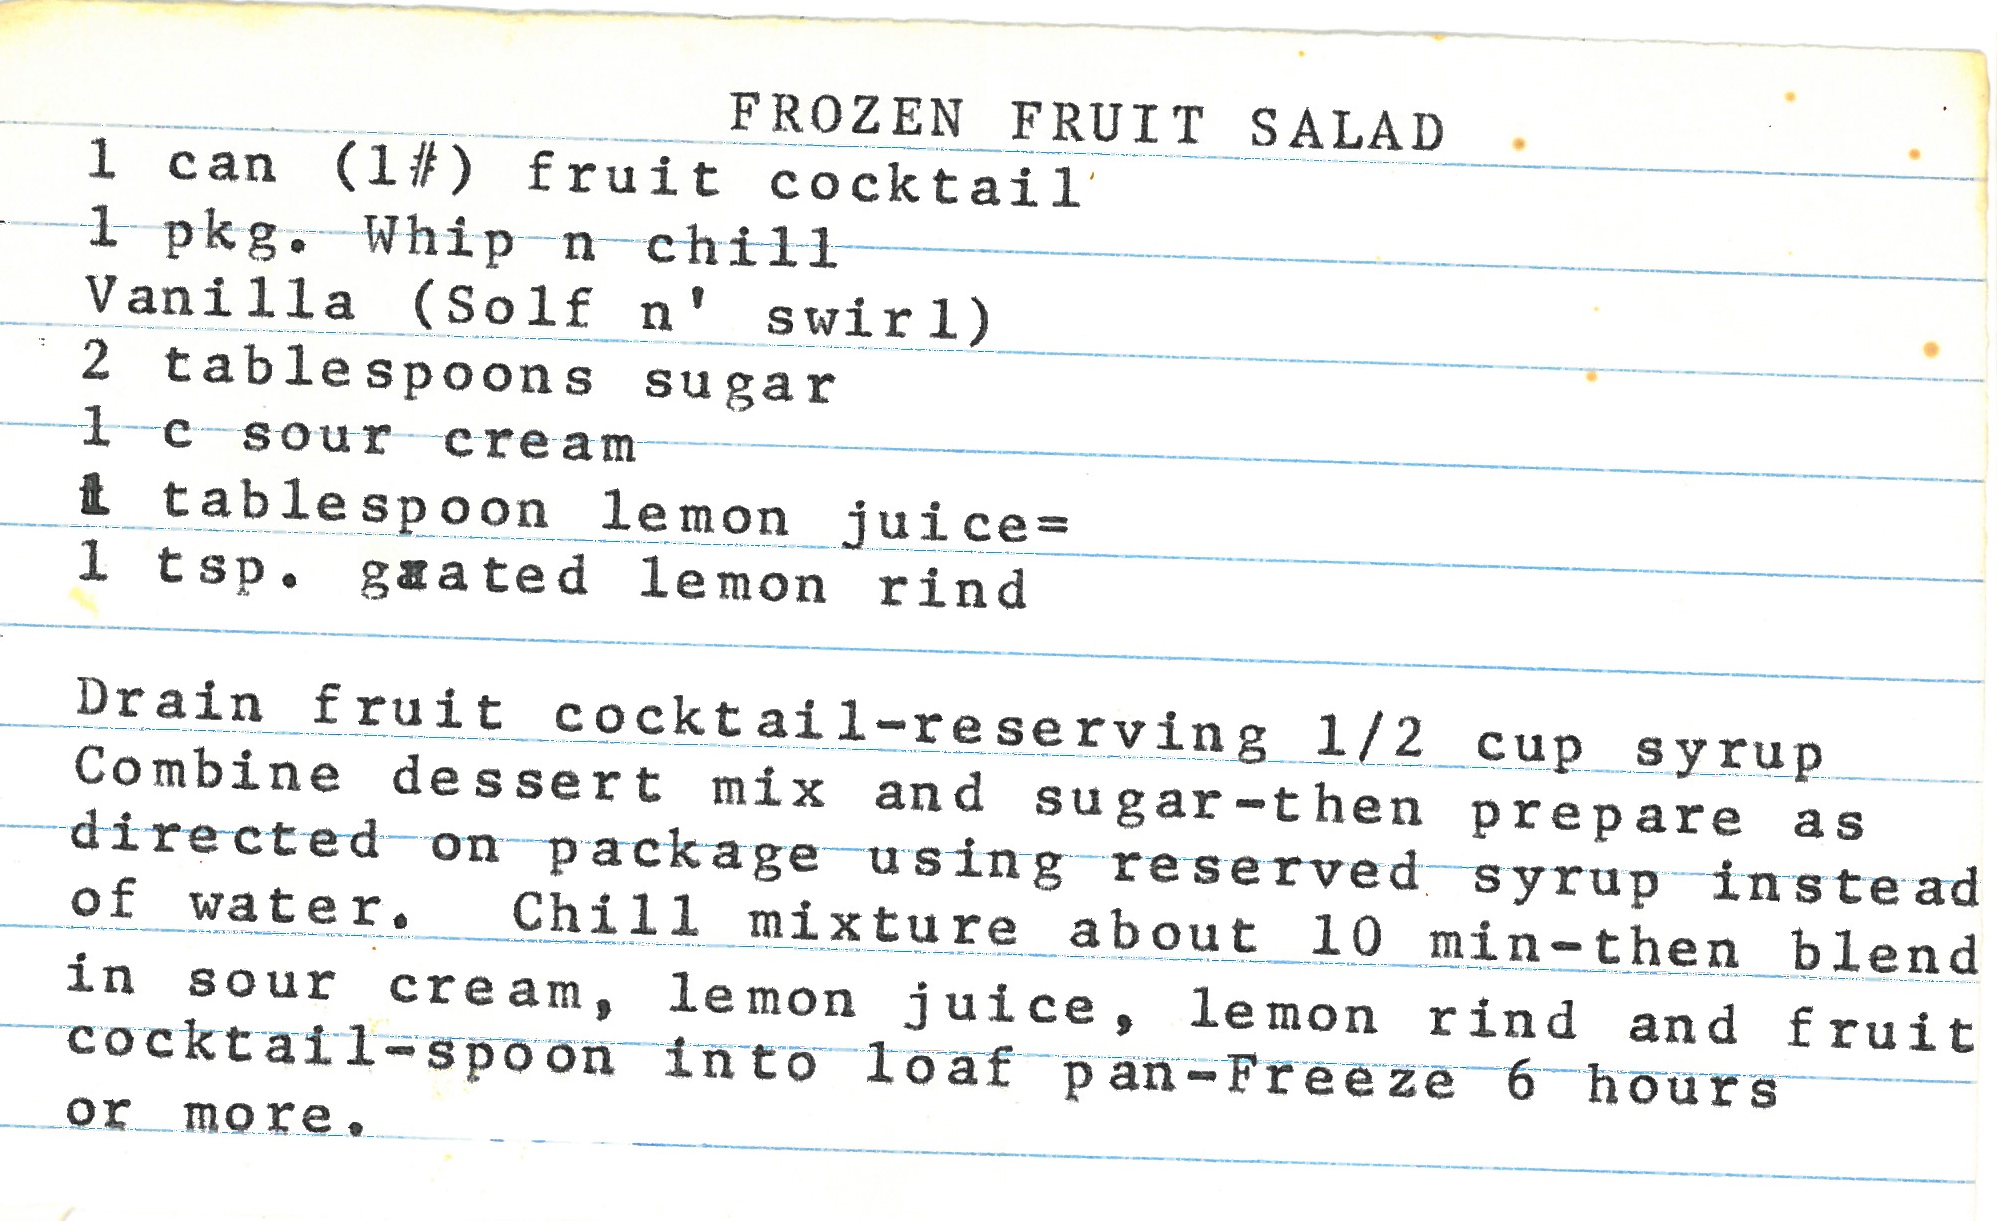 FROZEN FRUIT SALAD
1 can (1#) fruit cocktail
1 pkg. Whip n chill
Vanilla (Solf n' swirl)
2 tablespoons sugar
1 c sour cream
1 tablespoon lemon juice=
1 tsp. grated lemon rind
Drain fruit cocktail-reserving 1/2 cup syrup
Combine dessert mix and sugar-then prepare as
directed on package using reserved syrup instead
of water. Chill mixture about 10 min-then blend
in sour cream, lemon juice, lemon rind and fruit
cocktail-spoon into loaf pan-Freeze 6 hours
or more.